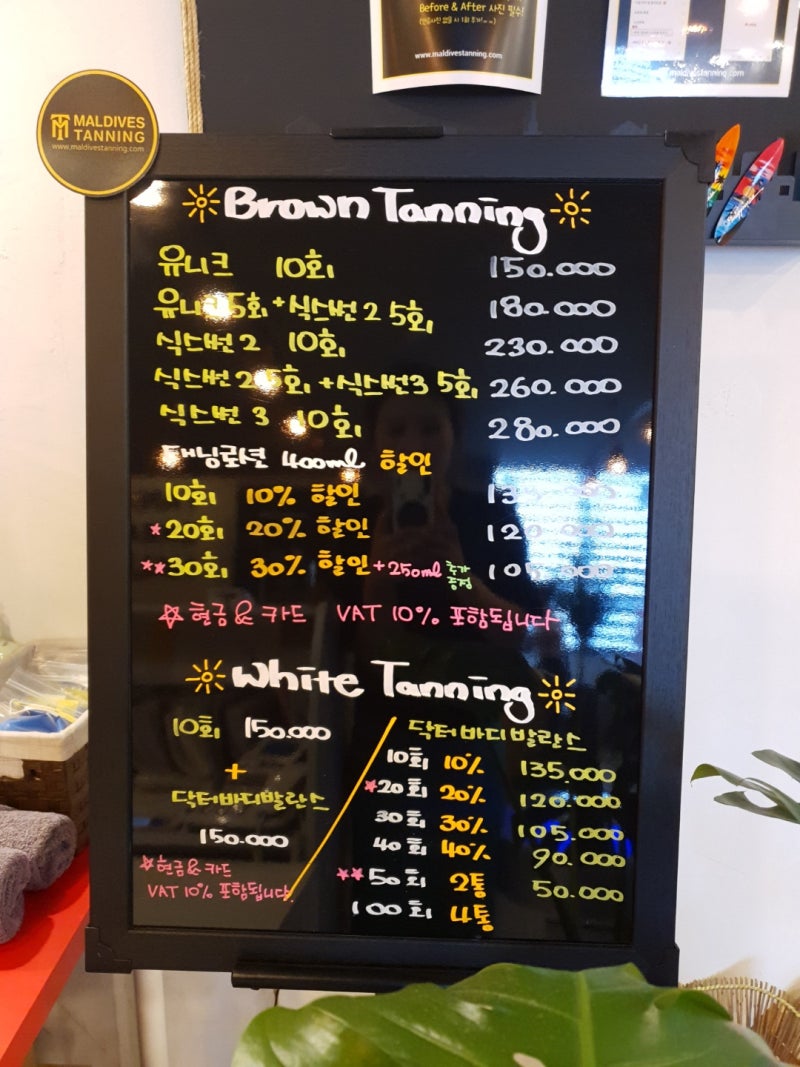 Before & After 사진 필수!
www.maldivestanning.com
maldivestanning.com
MALDIVES
TANNING
www.maldivestanning.com
Brown Tanning
유니크 10회 150.000
유니크 5회 + 식스번 2 5회 180.000
식스번 2 10회 230.000
식스번 2 5회 + 식스번 3 5회 260.000
식스번 3 10회 280.000
태닝로션 400ml 할인
10회 10% 할인 135.000
*20회 20% 할인 120.000
**30회 30% 할인 +250ml 추가 증정 105.000
☆ 현금 & 카드 VAT 10% 포함됩니다
White Tanning
10회 150.000
+
닥터바디발란스
150.000
☆현금 & 카드
VAT 10% 포함됩니다
닥터바디발란스
10회 10% 135.000
★20회 20% 120.000
30회 30% 105.000
40회 40% 90.000
★★50회 2통 50.000
100회 4통